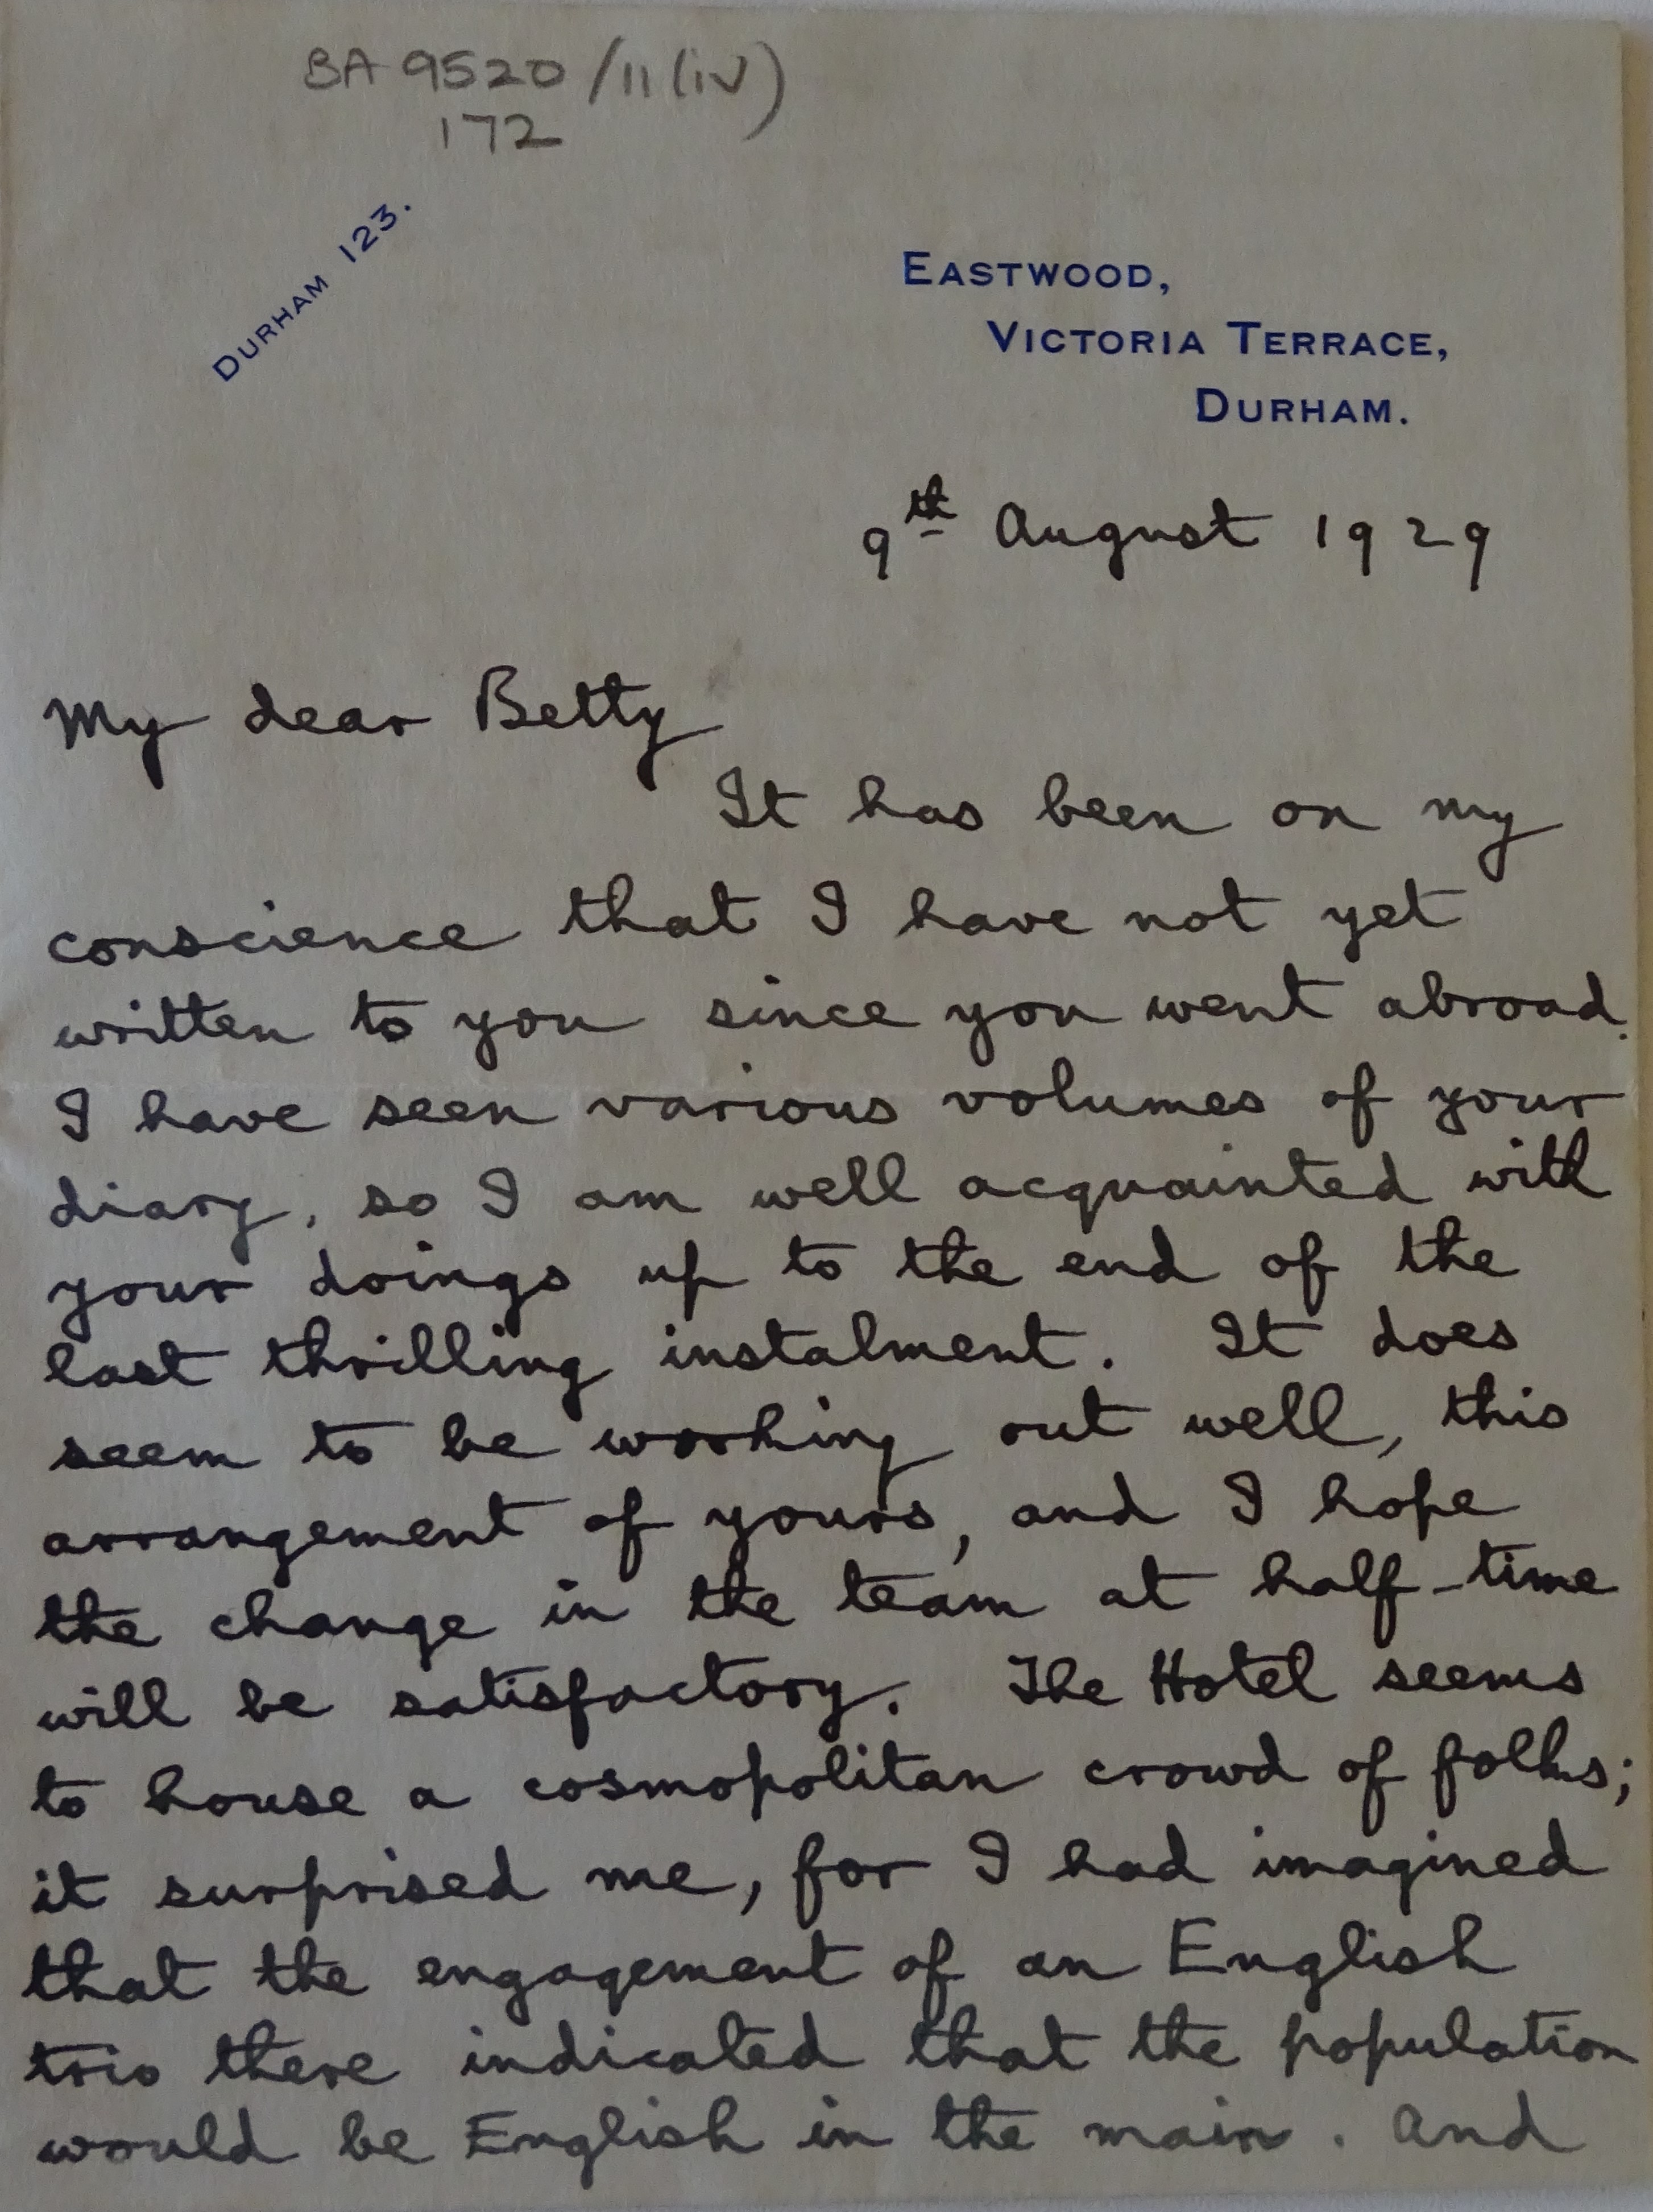 BA 9520/11(iv)
172
DURHAM 123.
EASTWOOD,
VICTORIA TERRACE,
DURHAM.
9th August 1929
My dear Betty
It has been on my
conscience that I have not yet
written to you since you went abroad.
I have seen various volumes of your
diary, so I am well acquainted with
your doings up to the end of the
last thrilling instalment. It does
seem to be working out well, this
arrangement of yours, and I hope
the change in the team at half-time
will be satisfactory. The Hotel seems
to house a cosmopolitan crowd of folks;
it surprised me, for I had imagined
that the engagement of an English
trio there indicated that the population
would be English in the main. And